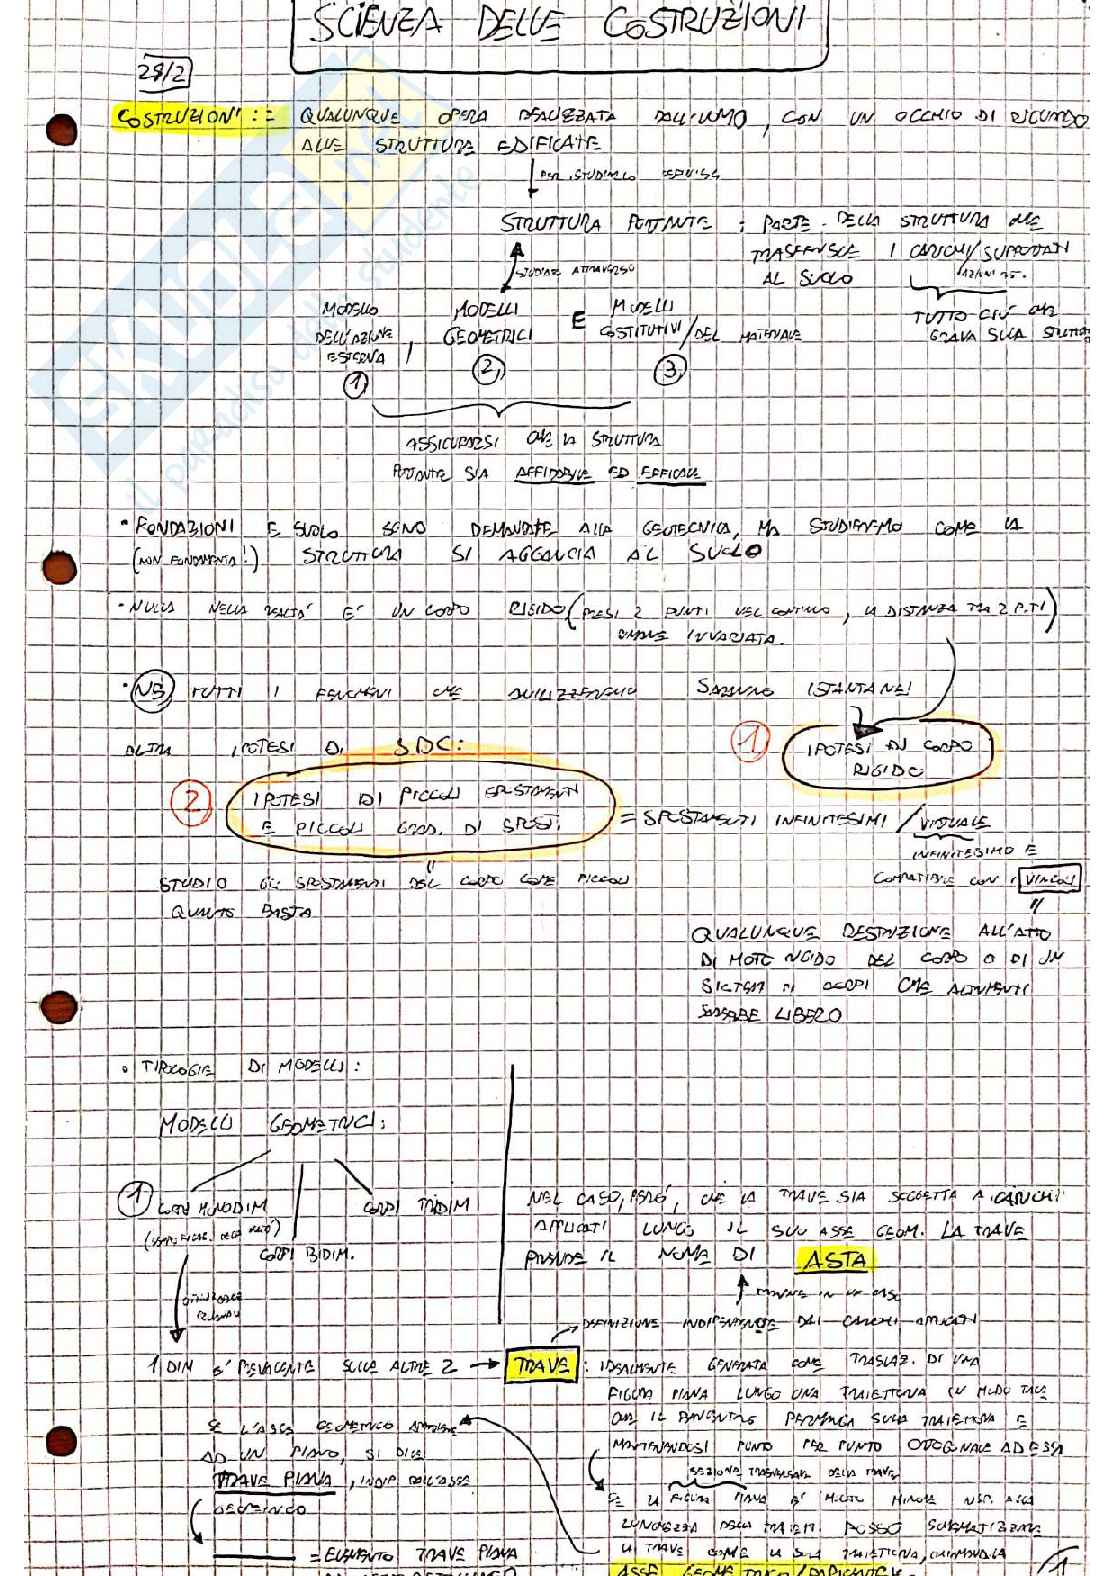 SCIENZA DELLE COSTRUZIONI
28/2
COSTRUZIONI := QUALUNQUE OPERA REALIZZATA DALL'UOMO, CON UN OCCHIO DI RIGUARDO
ALLE STRUTTURE EDIFICATE
PER STUDIARLO
STRUTTURA PORTANTE : PARTE DELLA STRUTTURA CHE
TRASFERISCE I CARICHI/SUPPORTATI
AL SUOLO
STUDIARE ATTRAVERSO
TUTTO CIÒ CHE
GRAVA SULLA STRUTTURA
MODELLO
DELL'AZIONE
ESTERNA
,
MODELLI
GEOMETRICI
E
MODELLI
COSTITUTIVI/DEL MATERIALE
1
2
3
ASSICURARSI CHE LA STRUTTURA
PORTANTE SIA AFFIDABILE ED EFFICACE
• FONDAZIONI E SUOLO SONO DEMANDATE ALLA GEOTECNICA, MA STUDIEREMO COME LA
(NON FONDAMENTA!) STRUTTURA SI AGGANCIA AL SUOLO
• NULLA NELLA REALTÀ E' UN CORPO RIGIDO (PRESI 2 PUNTI NEL CONTINUO, LA DISTANZA TRA 2 P.TI)
RIMANE INVARIATA.
• NB TUTTI I FENOMENI CHE ANALIZZEREMO SARANNO ISTANTANEI
1
IPOTESI DI CORPO
RIGIDO
ALTRA IPOTESI DI SDC:
2
IPOTESI DI PICCOLI SPOSTAMENTI
E PICCOLI GRAD. DI SPOST.
= SPOSTAMENTI INFINITESIMI / VIRTUALE
INFINITESIMO E
COMPATIBILE CON I VINCOLI
STUDIO GLI SPOSTAMENTI DEL CORPO COME PICCOLI
QUANTO BASTA
QUALUNQUE RESTRIZIONE ALL'ATTO
DI MOTO RIGIDO DEL CORPO O DI UN
SISTEMA DI CORPI CHE ALTRIMENTI
SAREBBE LIBERO
• TIPOLOGIE DI MODELLI:
MODELLI GEOMETRICI:
1
MONODIM
CORPI BIDIM.
CORPI TRIDIM
NEL CASO, PERÒ, CHE LA TRAVE SIA SOGGETTA A CARICHI
APPLICATI LUNGO IL SUO ASSE GEOM. LA TRAVE
PRENDE IL NOME DI ASTA
DEFINIZIONE INDIPENDENTE DAI CARICHI APPLICATI
1 DIM E' PREVALENTE SULLE ALTRE 2 → TRAVE : IDEALMENTE GENERATA COME TRASLAZ. DI UNA
FIGURA PIANA LUNGO UNA TRAIETTORIA IN MODO TALE
CHE IL BARICENTRO PERMANGA SULLA TRAIETTORIA E
MANTENENDOSI PUNTO PER PUNTO ORTOGONALE AD ESSA
SEZIONE TRASVERSALE DELLA TRAVE
SE LA FIGURA PIANA E' MOLTO MINORE RISP. ALLA
LUNGHEZZA DELLA TRAIETT. POSSO SCHEMATIZZARE
LA TRAVE COME LA SUA TRAIETTORIA, CHIAMANDOLA
ASSE GEOMETRICO
SE L'ASSE GEOMETRICO APPARTIENE
AD UN PIANO, SI DICE
TRAVE PIANA, INDIP. DALL'ASSE
= ELEMENTO TRAVE PIANA
1
SKUOLA
il paradiso dello studente